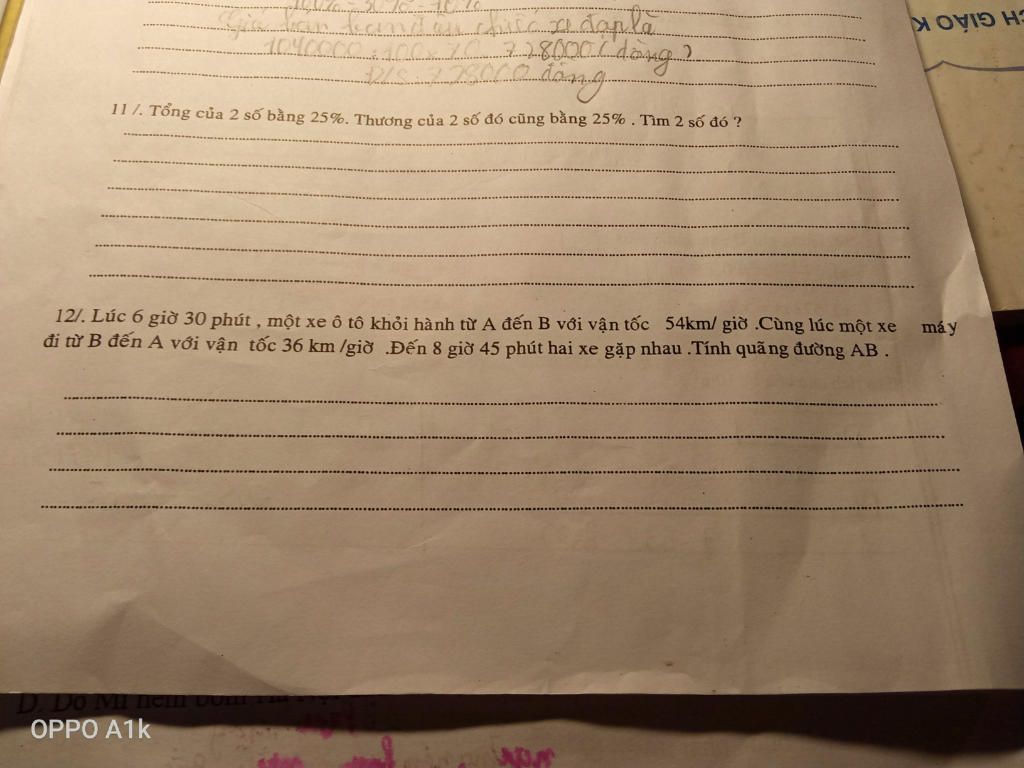 100% - 30% = 70%
Giá ban đầu chiếc xe đạp là
1040000 : 100 x 70 = 728000 (đồng)
Đ/S: 728000 đồng
CH GIÁO K
11/. Tổng của 2 số bằng 25%. Thương của 2 số đó cũng bằng 25% . Tìm 2 số đó ?
12/. Lúc 6 giờ 30 phút , một xe ô tô khỏi hành từ A đến B với vận tốc 54km/ giờ .Cùng lúc một xe máy
đi từ B đến A với vận tốc 36 km /giờ .Đến 8 giờ 45 phút hai xe gặp nhau .Tính quãng đường AB .
OPPO A1k